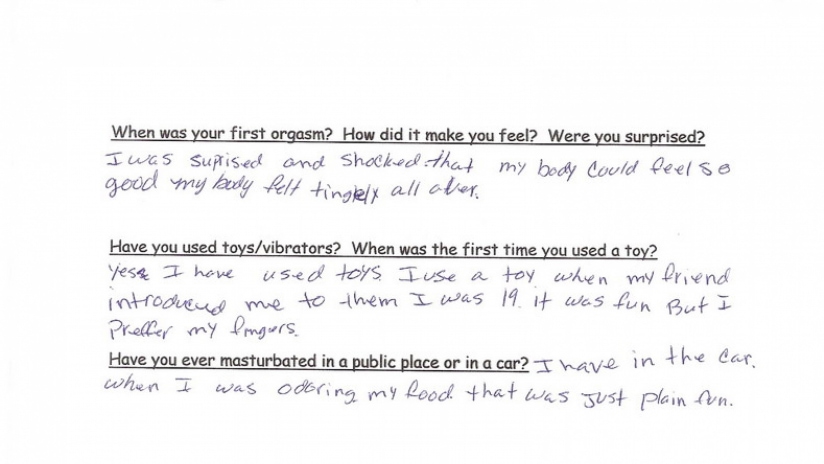 When was your first orgasm? How did it make you feel? Were you surprised?
I was suprised and shocked that my body could feel so
good my body felt tingely all over.
Have you used toys/vibrators? When was the first time you used a toy?
Yes I have used toys I use a toy when my friend
introduced me to them I was 19. it was fun But I
Preffer my fingers.
Have you ever masturbated in a public place or in a car? I have in the car.
when I was odoring my food that was just plain fun.